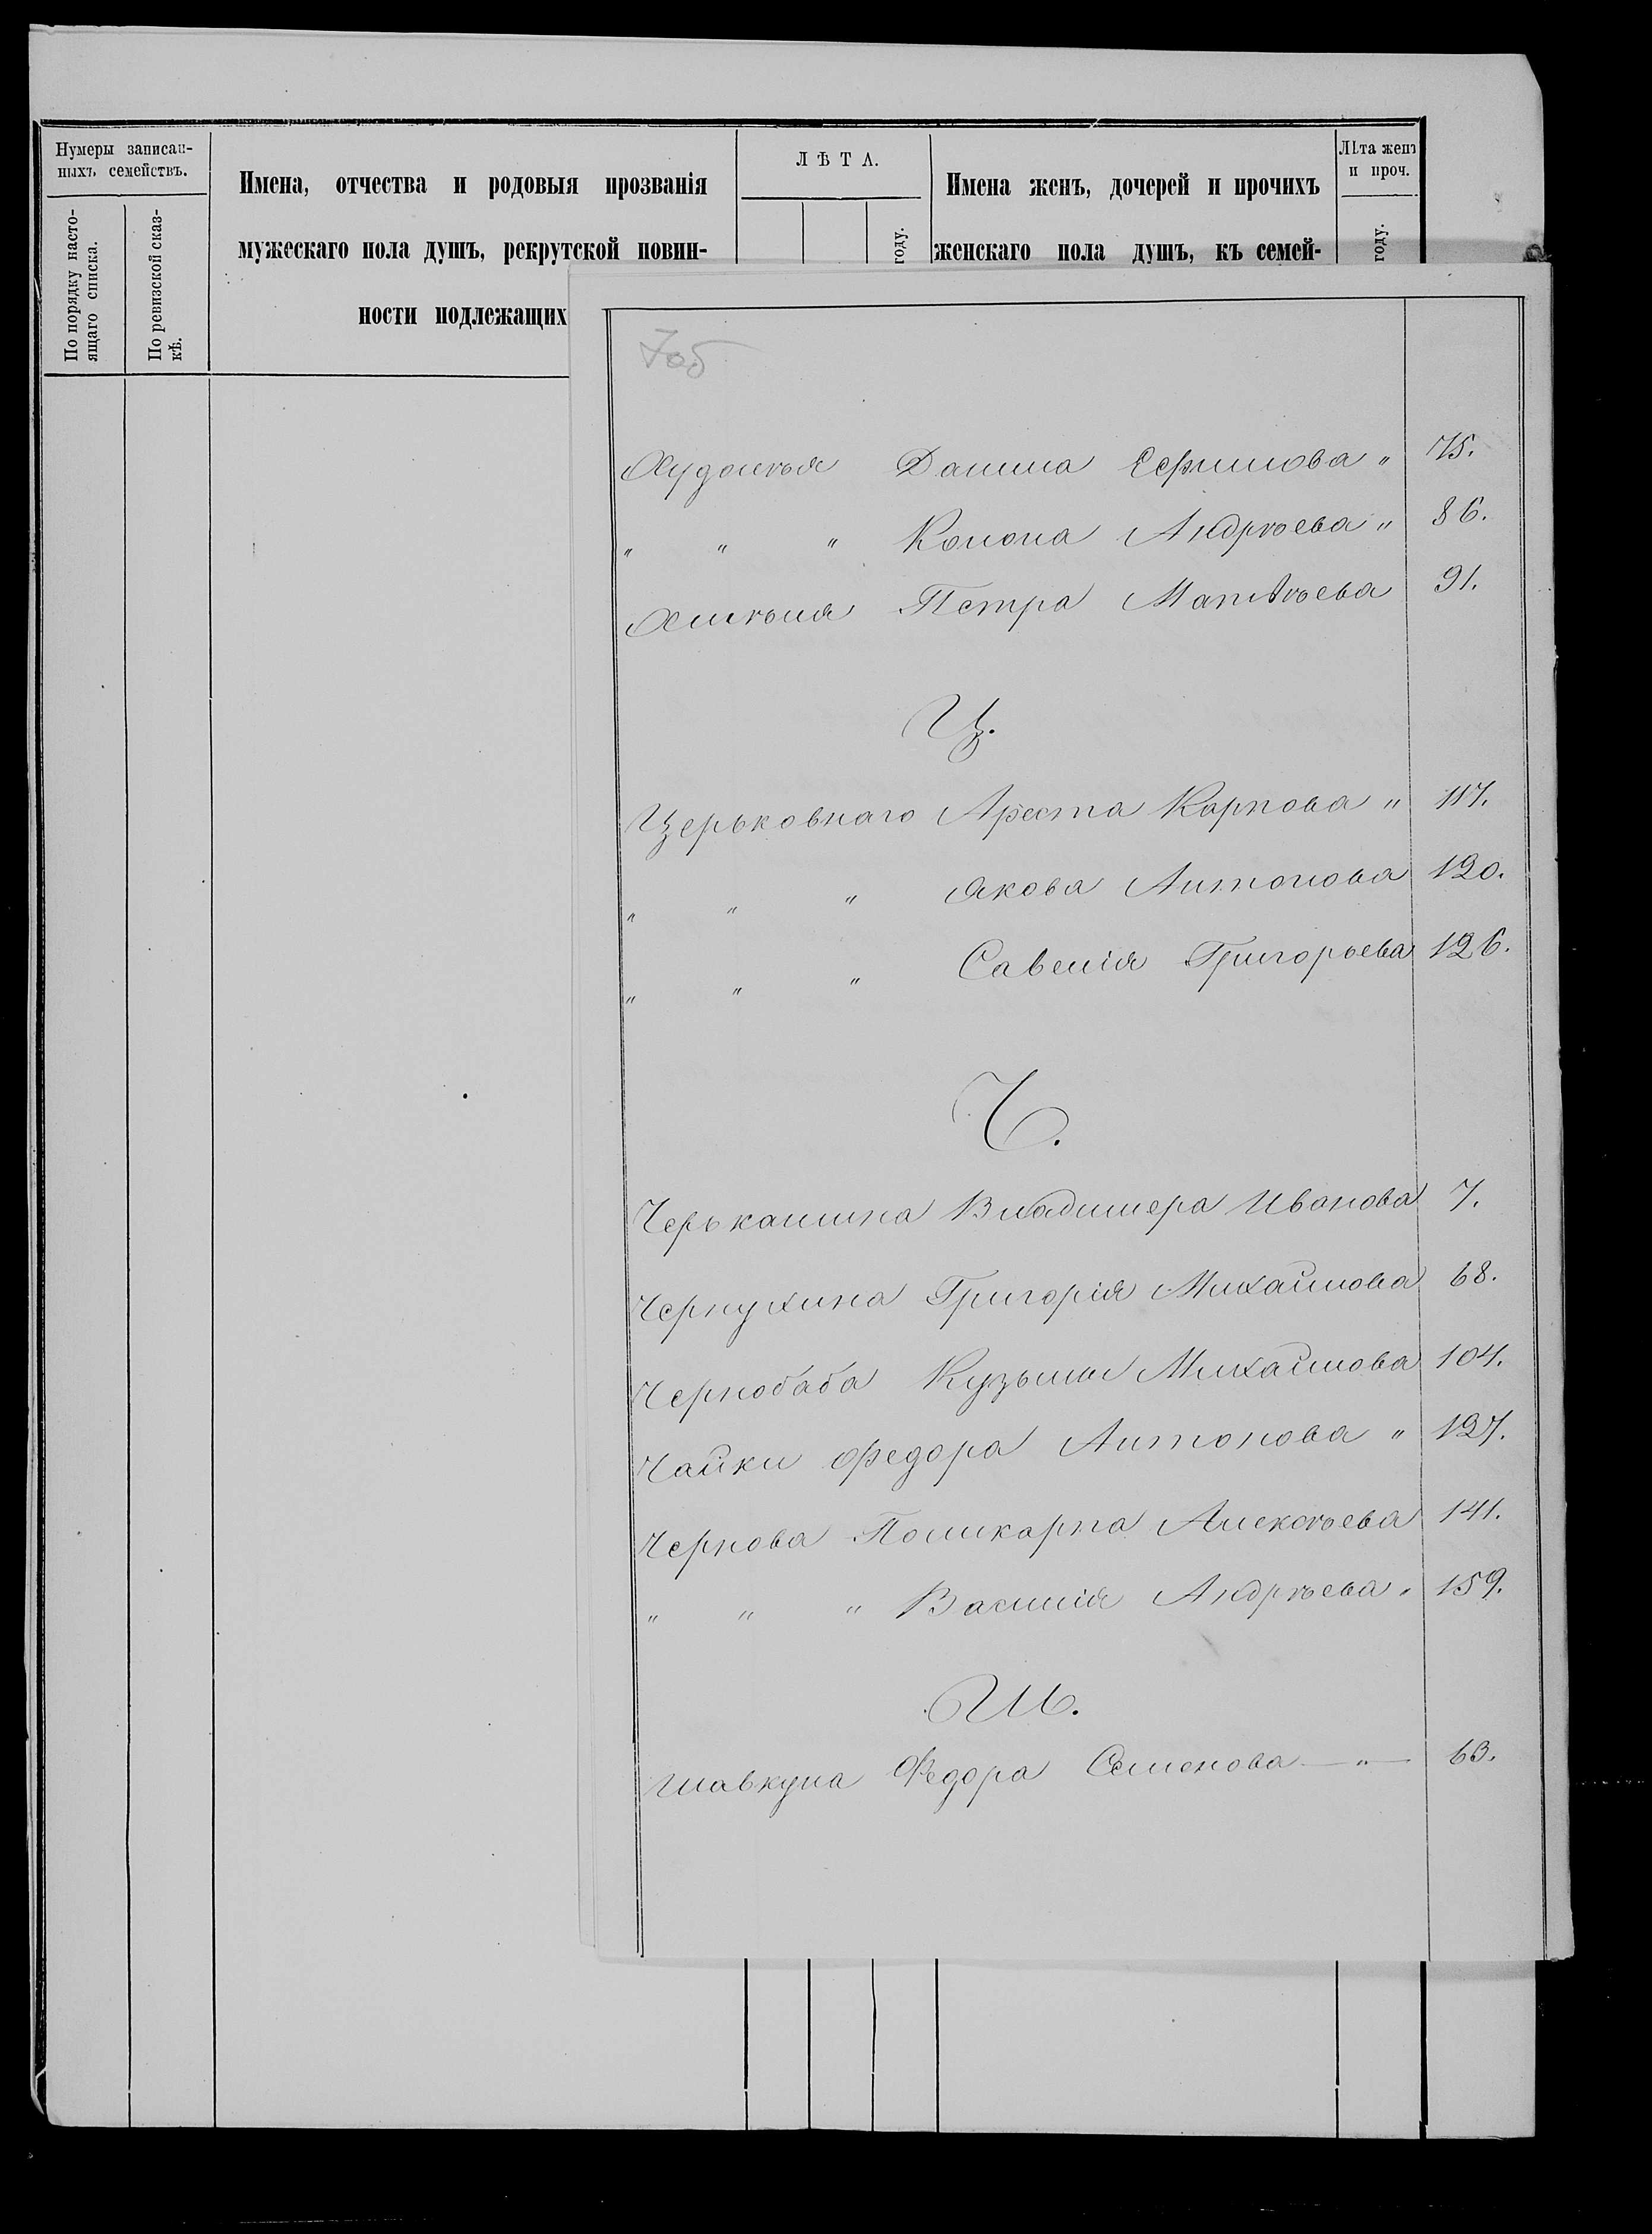 Нумеры записан-
ныхъ семействъ.
По порядку насто-
ящаго списка.
По ревизской сказ-
кѣ.
Имена, отчества и родовыя прозванія
мужескаго пола душъ, рекрутской повин-
ности подлежащих
ЛѢТА.
году.
Имена женъ, дочерей и прочихъ
женскаго пола душъ, къ семей-
Лѣта женъ
и проч.
году.
Данила Ефимова " 75.
" " " Конона Андрѣева " 86.
Петра Матвѣева 91.
Ц.
Церьковнаго Ареста Карпова " 117.
" " " Якова Антонова 120.
" " " Савелія Григорьева 126.
Ч.
Черькашина Владимера Иванова 7.
Чернухина Григорія Михайлова 68.
Чернобаба Кузьмы Михайлова 104.
Чайки Федора Антонова " 127.
Чернова Поликарпа Алексѣева 141.
" " " Василія Андрѣева " 159.
Ш.
Шавкуна Федора Семенова — " — 63.